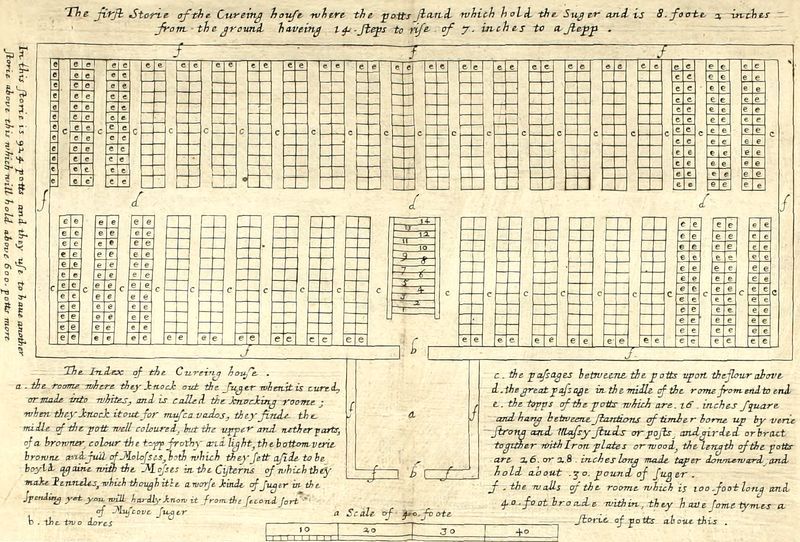 The first Storie of the Cureing house where the potts stand which hold the Suger and is 8. foote 2 inches
from the ground haveing 14. steps to rise of 7. inches to a stepp .
In this storie is 924 potts and they use to have another
storie above this which will hold above 600. potts more
f f f
c c c c c c c c c c c c c c c c c c c c
f d d d f
14
13
12
11
10
9
8
7
6
5
4
3
2
1
c c c c c c c c c c c c c c c c c c
f b f
The Index of the Cureing house .
a . the roome where they knock out the suger when it is cured,
or made into whites, and is called the knocking roome ;
when they knock it out for muscavados, they finde the
midle of the pott well coloured, but the upper and nether parts,
of a browner colour the topp frothy and light, the bottom verie
browne and full of Molosses, both which they sett aside to be
boyld againe with the Mosses in the Cisterns of which they
make Penneles, which though it be a worse kinde of suger in the
spending yet you will hardly know it from the second sort
of Muscove suger
b . the two dores
f a f
f b f
c . the passages betweene the potts upon the flour above
d . the great passage in the midle of the rome from end to end
e . the topps of the potts which are . 16 . inches square
and hang betweene stantions of timber borne up by verie
strong and Massy studs or posts, and girded or bract
together with Iron plates or wood, the length of the potts
are 26. or 28. inches long made taper donneward, and
hold about .30. pound of suger .
f . the walls of the roome which is 100. foot long and
40. foot broade within, they have some tymes a
storie of potts above this .
a Scale of 40. foote
10 20 30 40